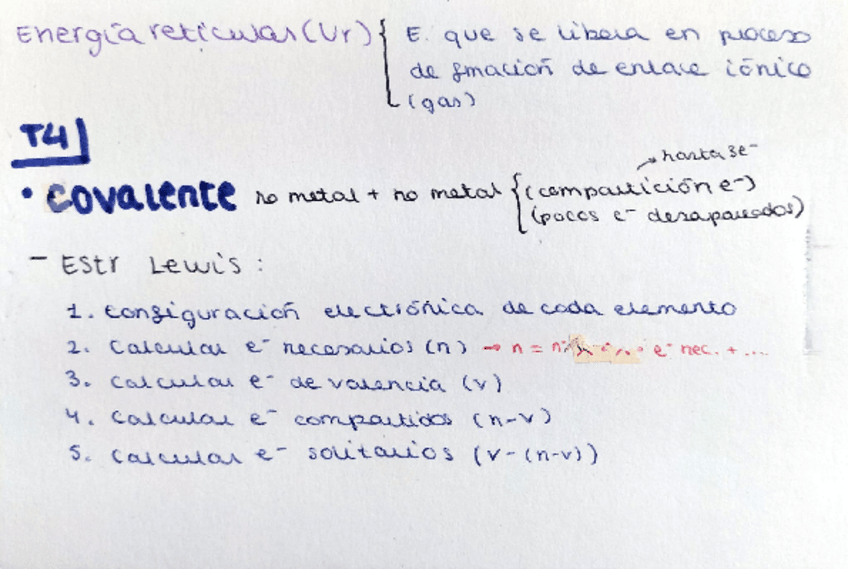 Energía reticular (Ur) { E. que se libera en proceso
de formación de enlace iónico
(gas)
T4
hasta 3e⁻
• covalente no metal + no metal { (compartición e⁻)
(pocos e⁻ desapareados)
- Estr Lewis:
1. configuración electrónica de cada elemento
2. calcular e⁻ necesarios (n) → n = e⁻ nec. + ...
3. calcular e⁻ de valencia (v)
4. calcular e⁻ compartidos (n-v)
5. calcular e⁻ solitarios (v-(n-v))